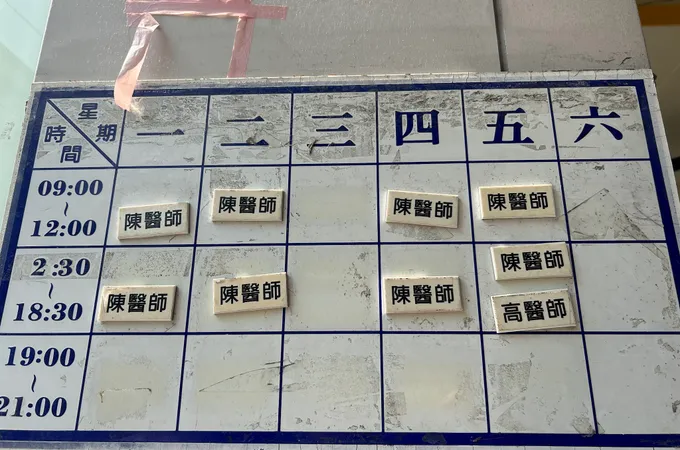 星期
時間
一 二 三 四 五 六
09:00
~
12:00
陳醫師 陳醫師 陳醫師 陳醫師
2:30
~
18:30
陳醫師 陳醫師 陳醫師 陳醫師
高醫師
19:00
~
21:00